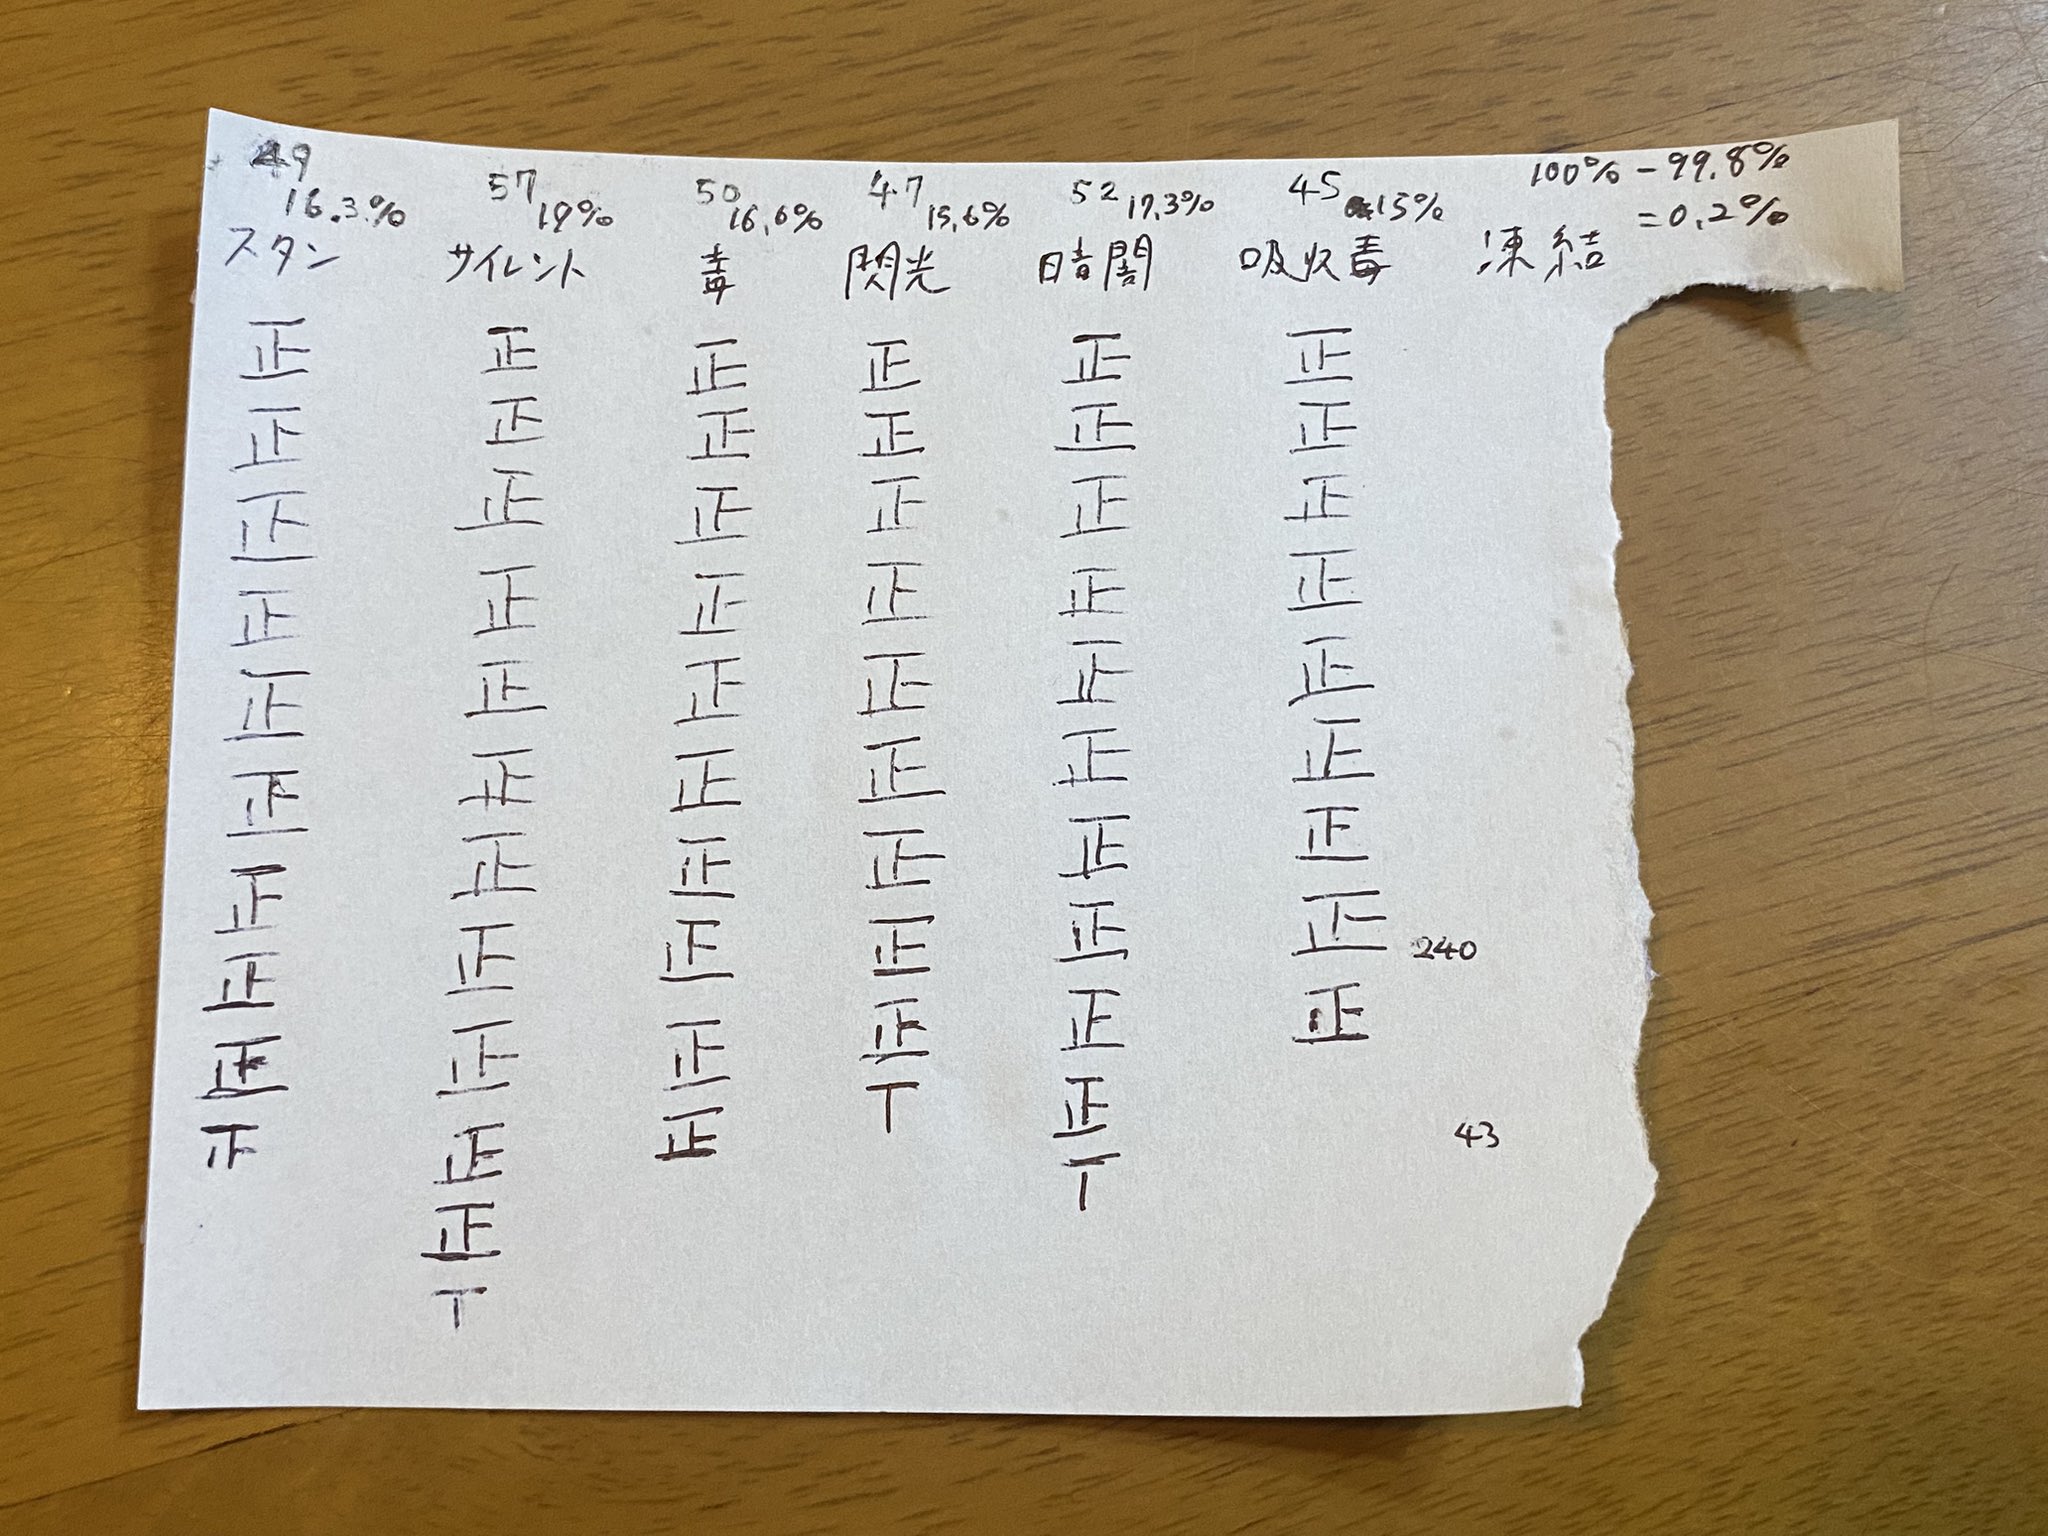 49 57 50 47 52 45 100%-99.8%
16.3.% 19% 16.6% 15.6% 17.3% 15% =0.2%
スタン サイレント 毒 閃光 暗闇 吸収毒 凍結
正 正 正 正 正 正
正 正 正 正 正 正
正 正 正 正 正 正
正 正 正 正 正 正
正 正 正 正 正 正
正 正 正 正 正 正
正 正 正 正 正 正
正 正 正 正 正 正 240
正 正 正 正 正 正
正 正 T 正 43
正 T
T